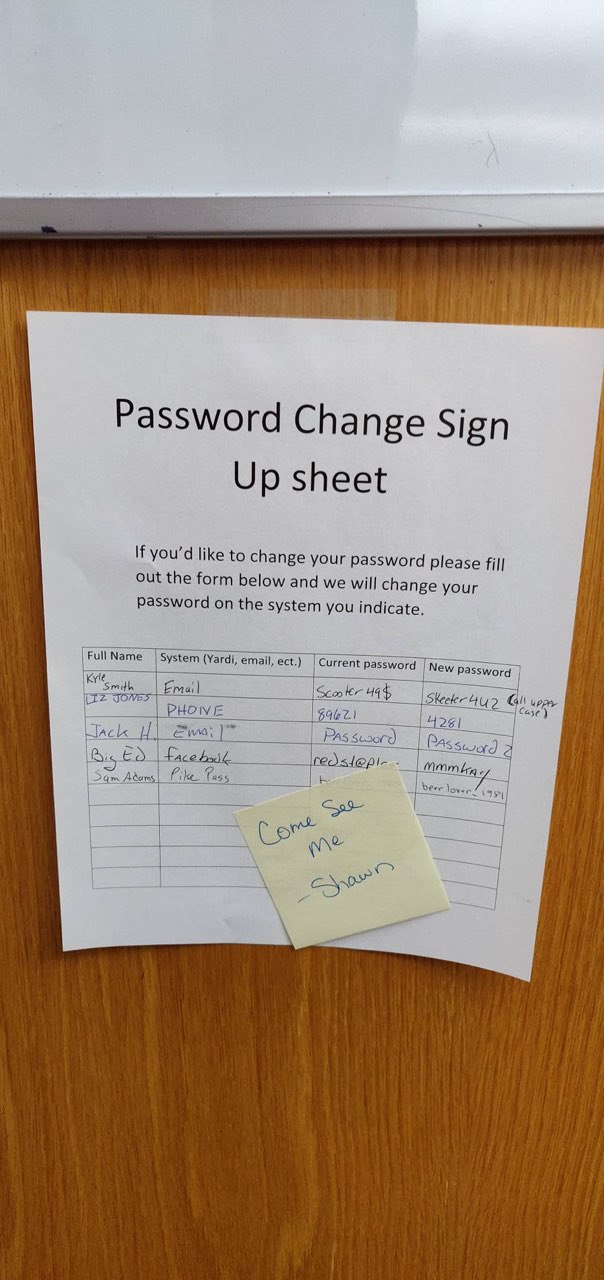 Password Change Sign
Up sheet
If you'd like to change your password please fill
out the form below and we will change your
password on the system you indicate.
Full Name System (Yardi, email, ect.) Current password New password
Kyle Smith Email Scooter49$ Skeeter4U2 (all upper case)
LIZ JONES PHONE 89621 4281
Jack H. Email PASSWORD PASSWORD 2
Big Ed facebook mmmkay
Sam Adams Pike Pass beerlover_1981
Come See
Me
-Shawn